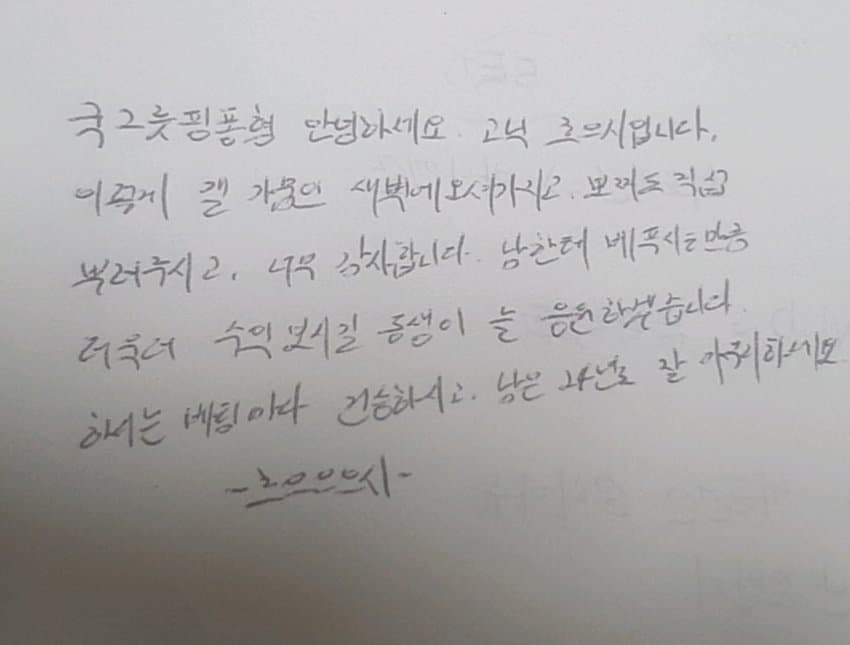 국그릇핑퐁형 안녕하세요. 고닉 흐으시입니다.
이렇게 갤 가뭄인 새벽에 오셔가지고. 보끼도 직접
뿌려주시고. 너무 감사합니다. 남한테 베푸시는만큼
더욱더 수익 보시길 동생이 늘 응원하겠습니다.
하시는 베팅마다 건승하시고. 남은 24년도 잘 마무리하세요
-흐으으으시-